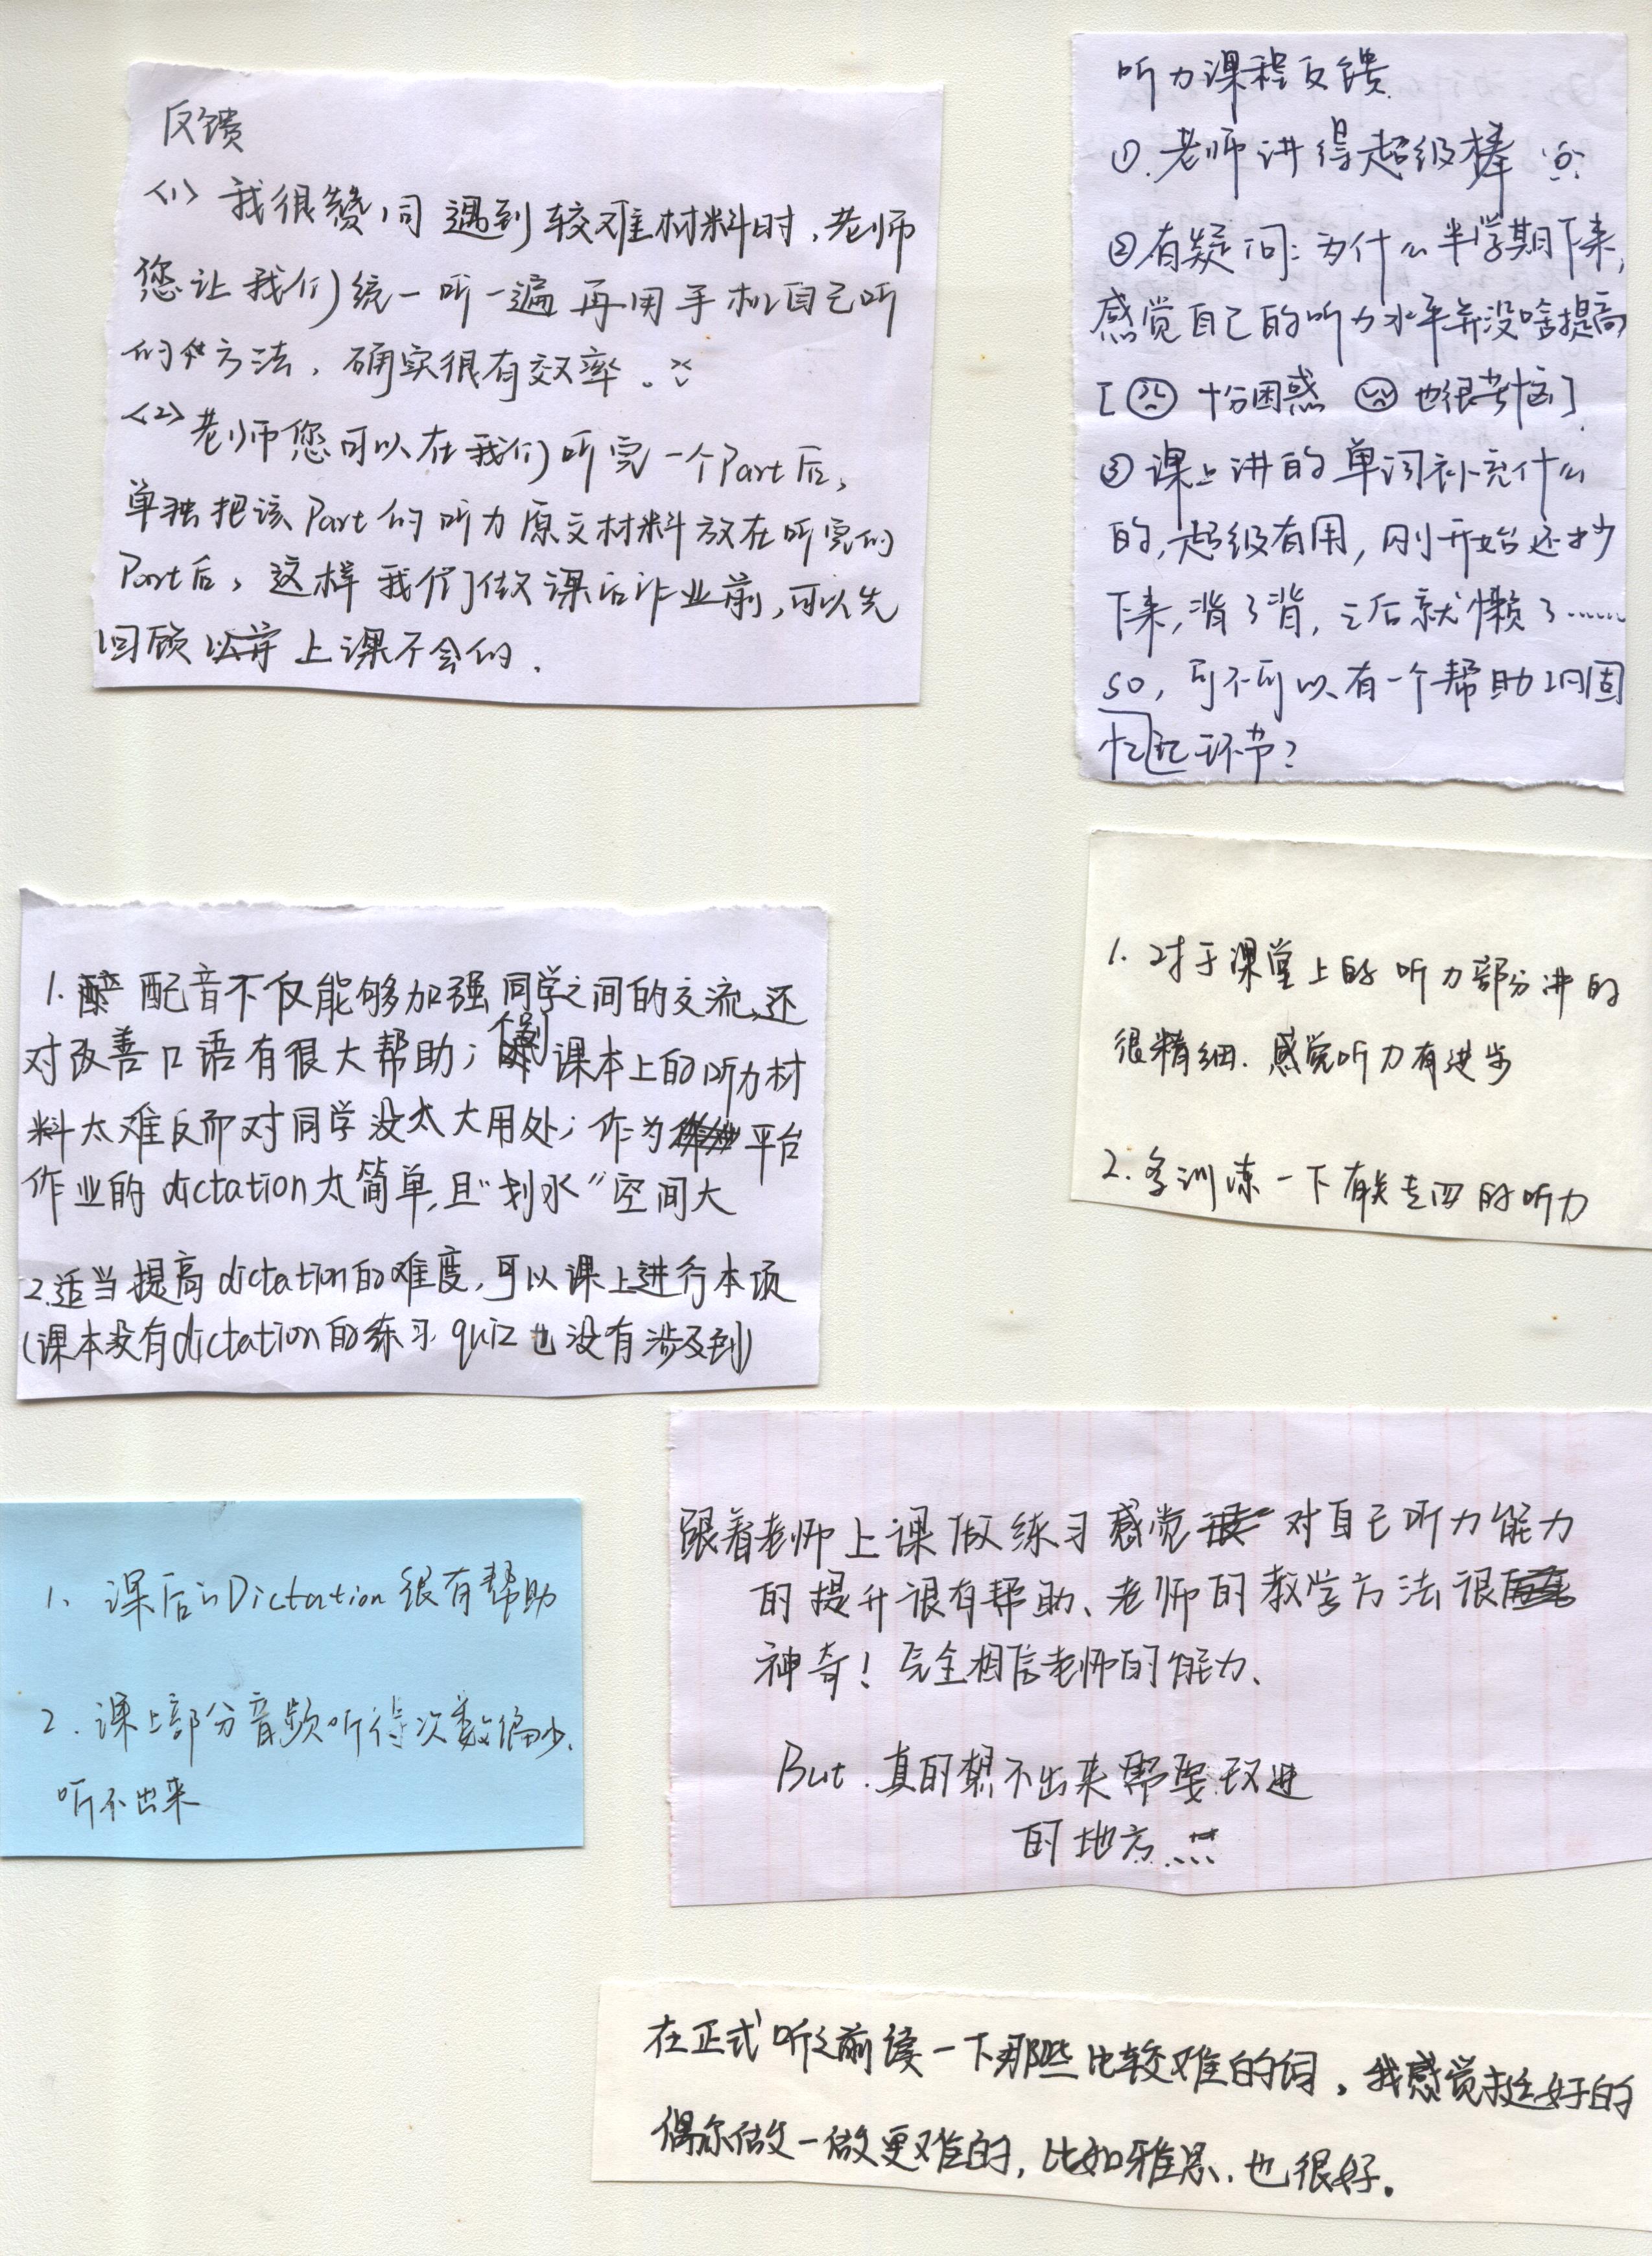 反馈
<1> 我很赞同遇到较难材料时，老师
您让我们统一听一遍再用手机自己听
的方法，确实很有效率。
<2> 老师您可以在我们听完一个Part后，
单独把该Part的听力原文材料放在听完的
Part后，这样我们做课后作业前，可以先
回顾上课不会的.
听力课程反馈.
①.老师讲得超级棒
②有疑问：为什么半学期下来，
感觉自己的听力水平并没啥提高
[ 十分困惑 也很苦恼].
③课上讲的单词补充什么
的，超级有用，刚开始还抄
下来，背了背，之后就懒了……
so，可不可以有一个帮助巩固
忆记环节？
1. 配音不仅能够加强同学之间的交流，还
对改善口语有很大帮助；个别课本上的听力材
料太难反而对同学没太大用处；作为平台
作业的dictation太简单，且“划水”空间大
2.适当提高dictation的难度，可以课上进行本项
(课本没有dictation的练习，quiz也没有涉及到)
1. 对于课堂上的听力部分讲的
很精细. 感觉听力有进步
2. 多训练一下有关专四的听力
跟着老师上课做练习感觉对自己听力能力
的提升很有帮助、老师的教学方法很
神奇！完全相信老师的能力、
But.真的想不出来需要改进
的地方...
1、课后的Dictation很有帮助
2.课上部分音频听得次数偏少、
听不出来
在正式听之前读一下那些比较难的词，我感觉挺好的
偶尔做一做更难的，比如雅思，也很好。